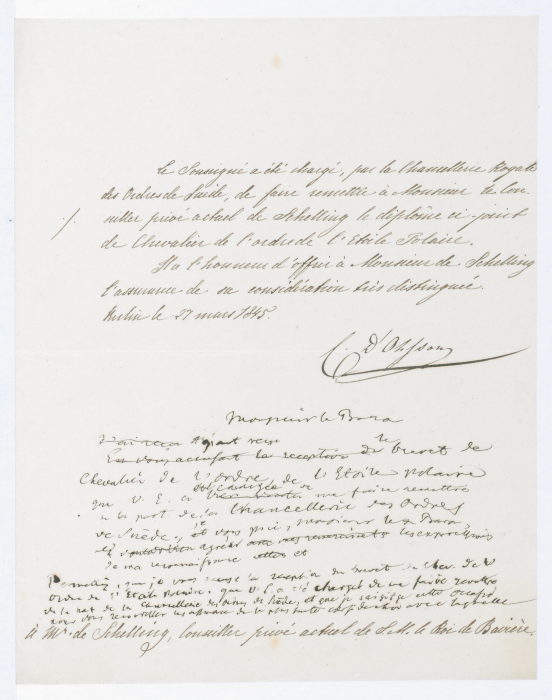 Le Soussigné a été chargé, par la Chancellerie Royale
des Ordres de Suède, de faire remettre à Monsieur le Con-
seiller privé actuel de Schelling le diplôme ci-joint
./.
de Chevalier de l'ordre de l'Etoile Polaire.
Il a l'honneur d'offrir à Monsieur de Schelling
l'assurance de sa considération très distinguée.
Berlin le 27 mars 1845.
C. D'Ohsson
Monsieur le Baron
Ayant reçu
En vous accusant la reception du brevet de
Chevalier de l'ordre de l'Etoile polaire
que V. E. a me faire remettre
de la part de la Chancellerie des Ordres
de Suède, je vous prie, Monsieur le Baron,
agréer les expressions
de ma reconnaissance et
Permettez, que je vous la reception du brevet de Chev. de l'
Ordre de l'Etoile polaire, que V. E. a été chargé de me faire remettre
de la part de la Chancellerie des Ordres de Suède, et que je saisisse cette occasion
vous de la considération avec laquelle
à Mr. de Schelling, Conseiller privé actuel de S. M. le Roi de Bavière.